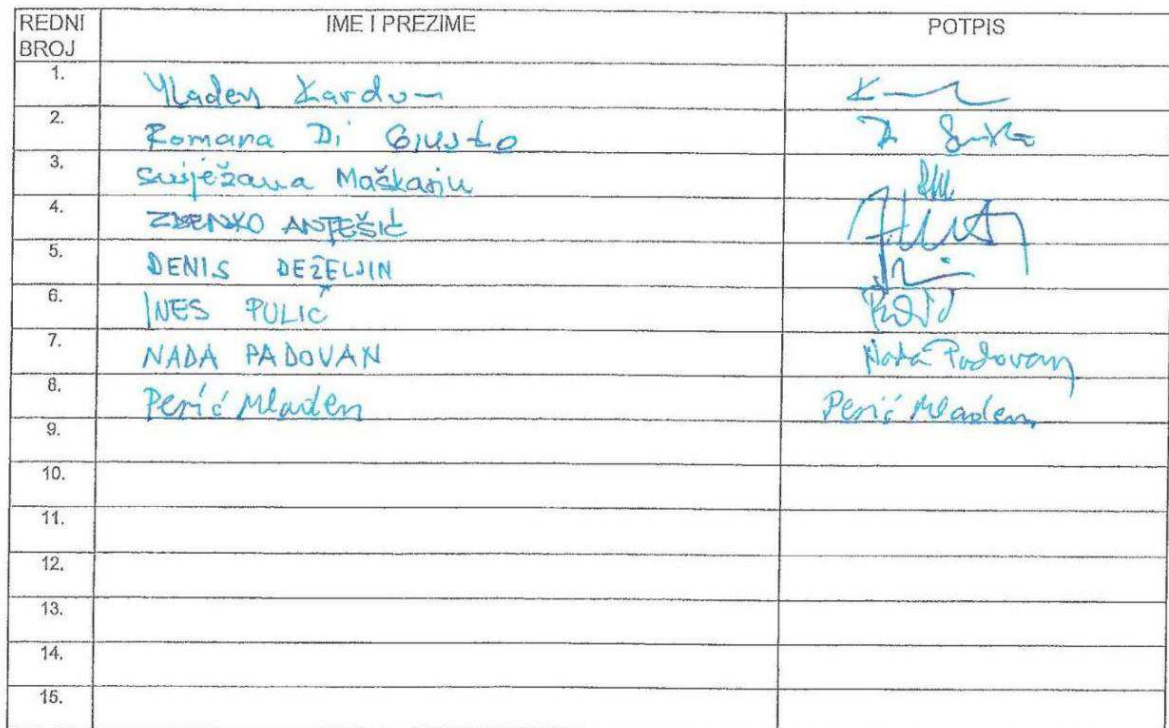 REDNI BROJ IME I PREZIME POTPIS
1. Mladen Kardum
2. Romana Di Giusto
3. Snježana Maškarin
4. ZDENKO ANTEŠIĆ
5. DENIS DEŽELJIN
6. INES PULIĆ
7. NADA PADOVAN Nada Padovan
8. Perić Mladen Perić Mladen
9.
10.
11.
12.
13.
14.
15.